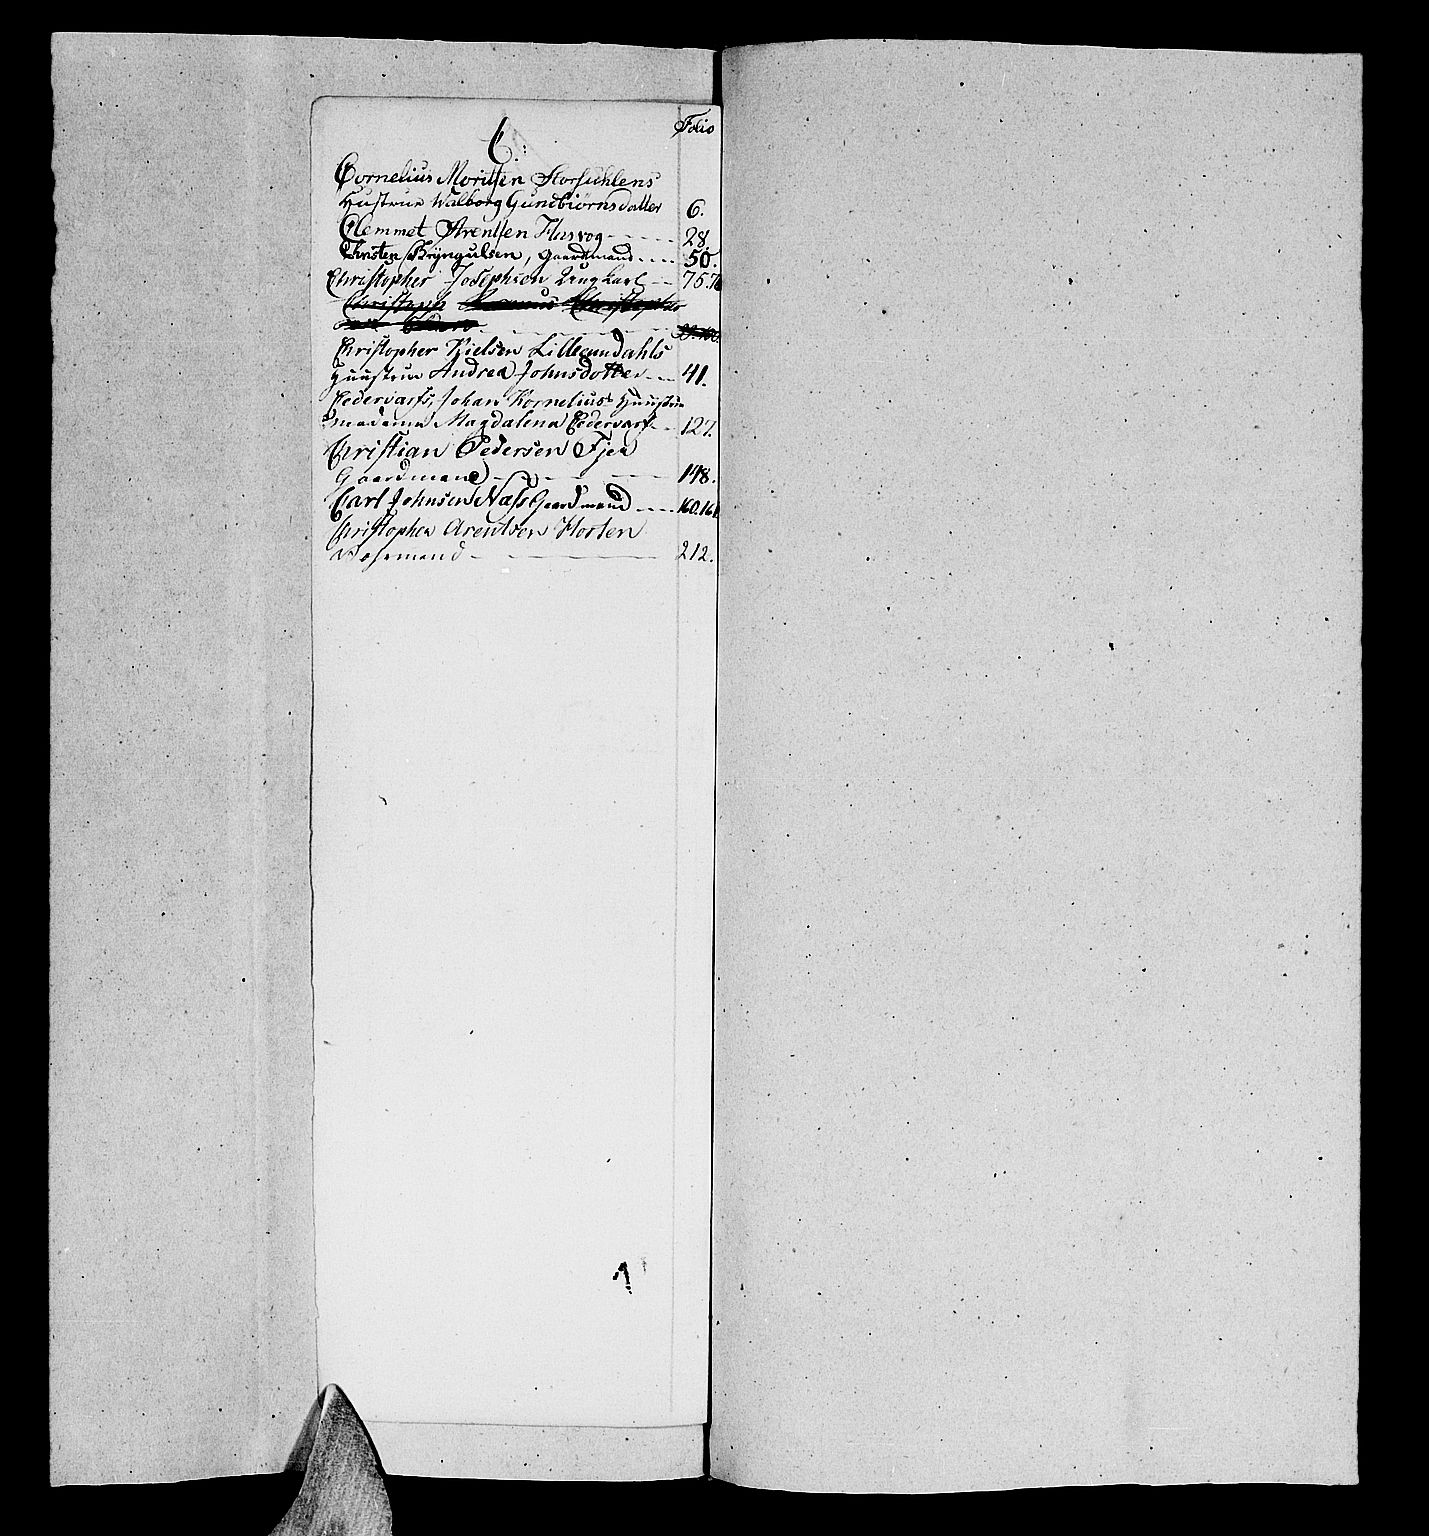 C.
Folio
Cornelius Moritsen Storsuhlens
Hustrue Walborg Gundbiørnsdatter 6.
Clemmet Arentsen Husvog 28.
Christen Bryngulsen, Gaardmand 50.
Christopher Josephsen Ungkarl 75.
Christopher Nielsen Lillesundahls
Huustrue Andrea Johnsdotter 41.
Cedervarfs, Johan Kornelius Huustrue
madame Magdalena Cedervarf 127.
Christian Pedersen Fjer
Gaardmand 148.
Carl Johnsen Næss Gaardmand 160.161
Christopher Arentsen Horsen
212.